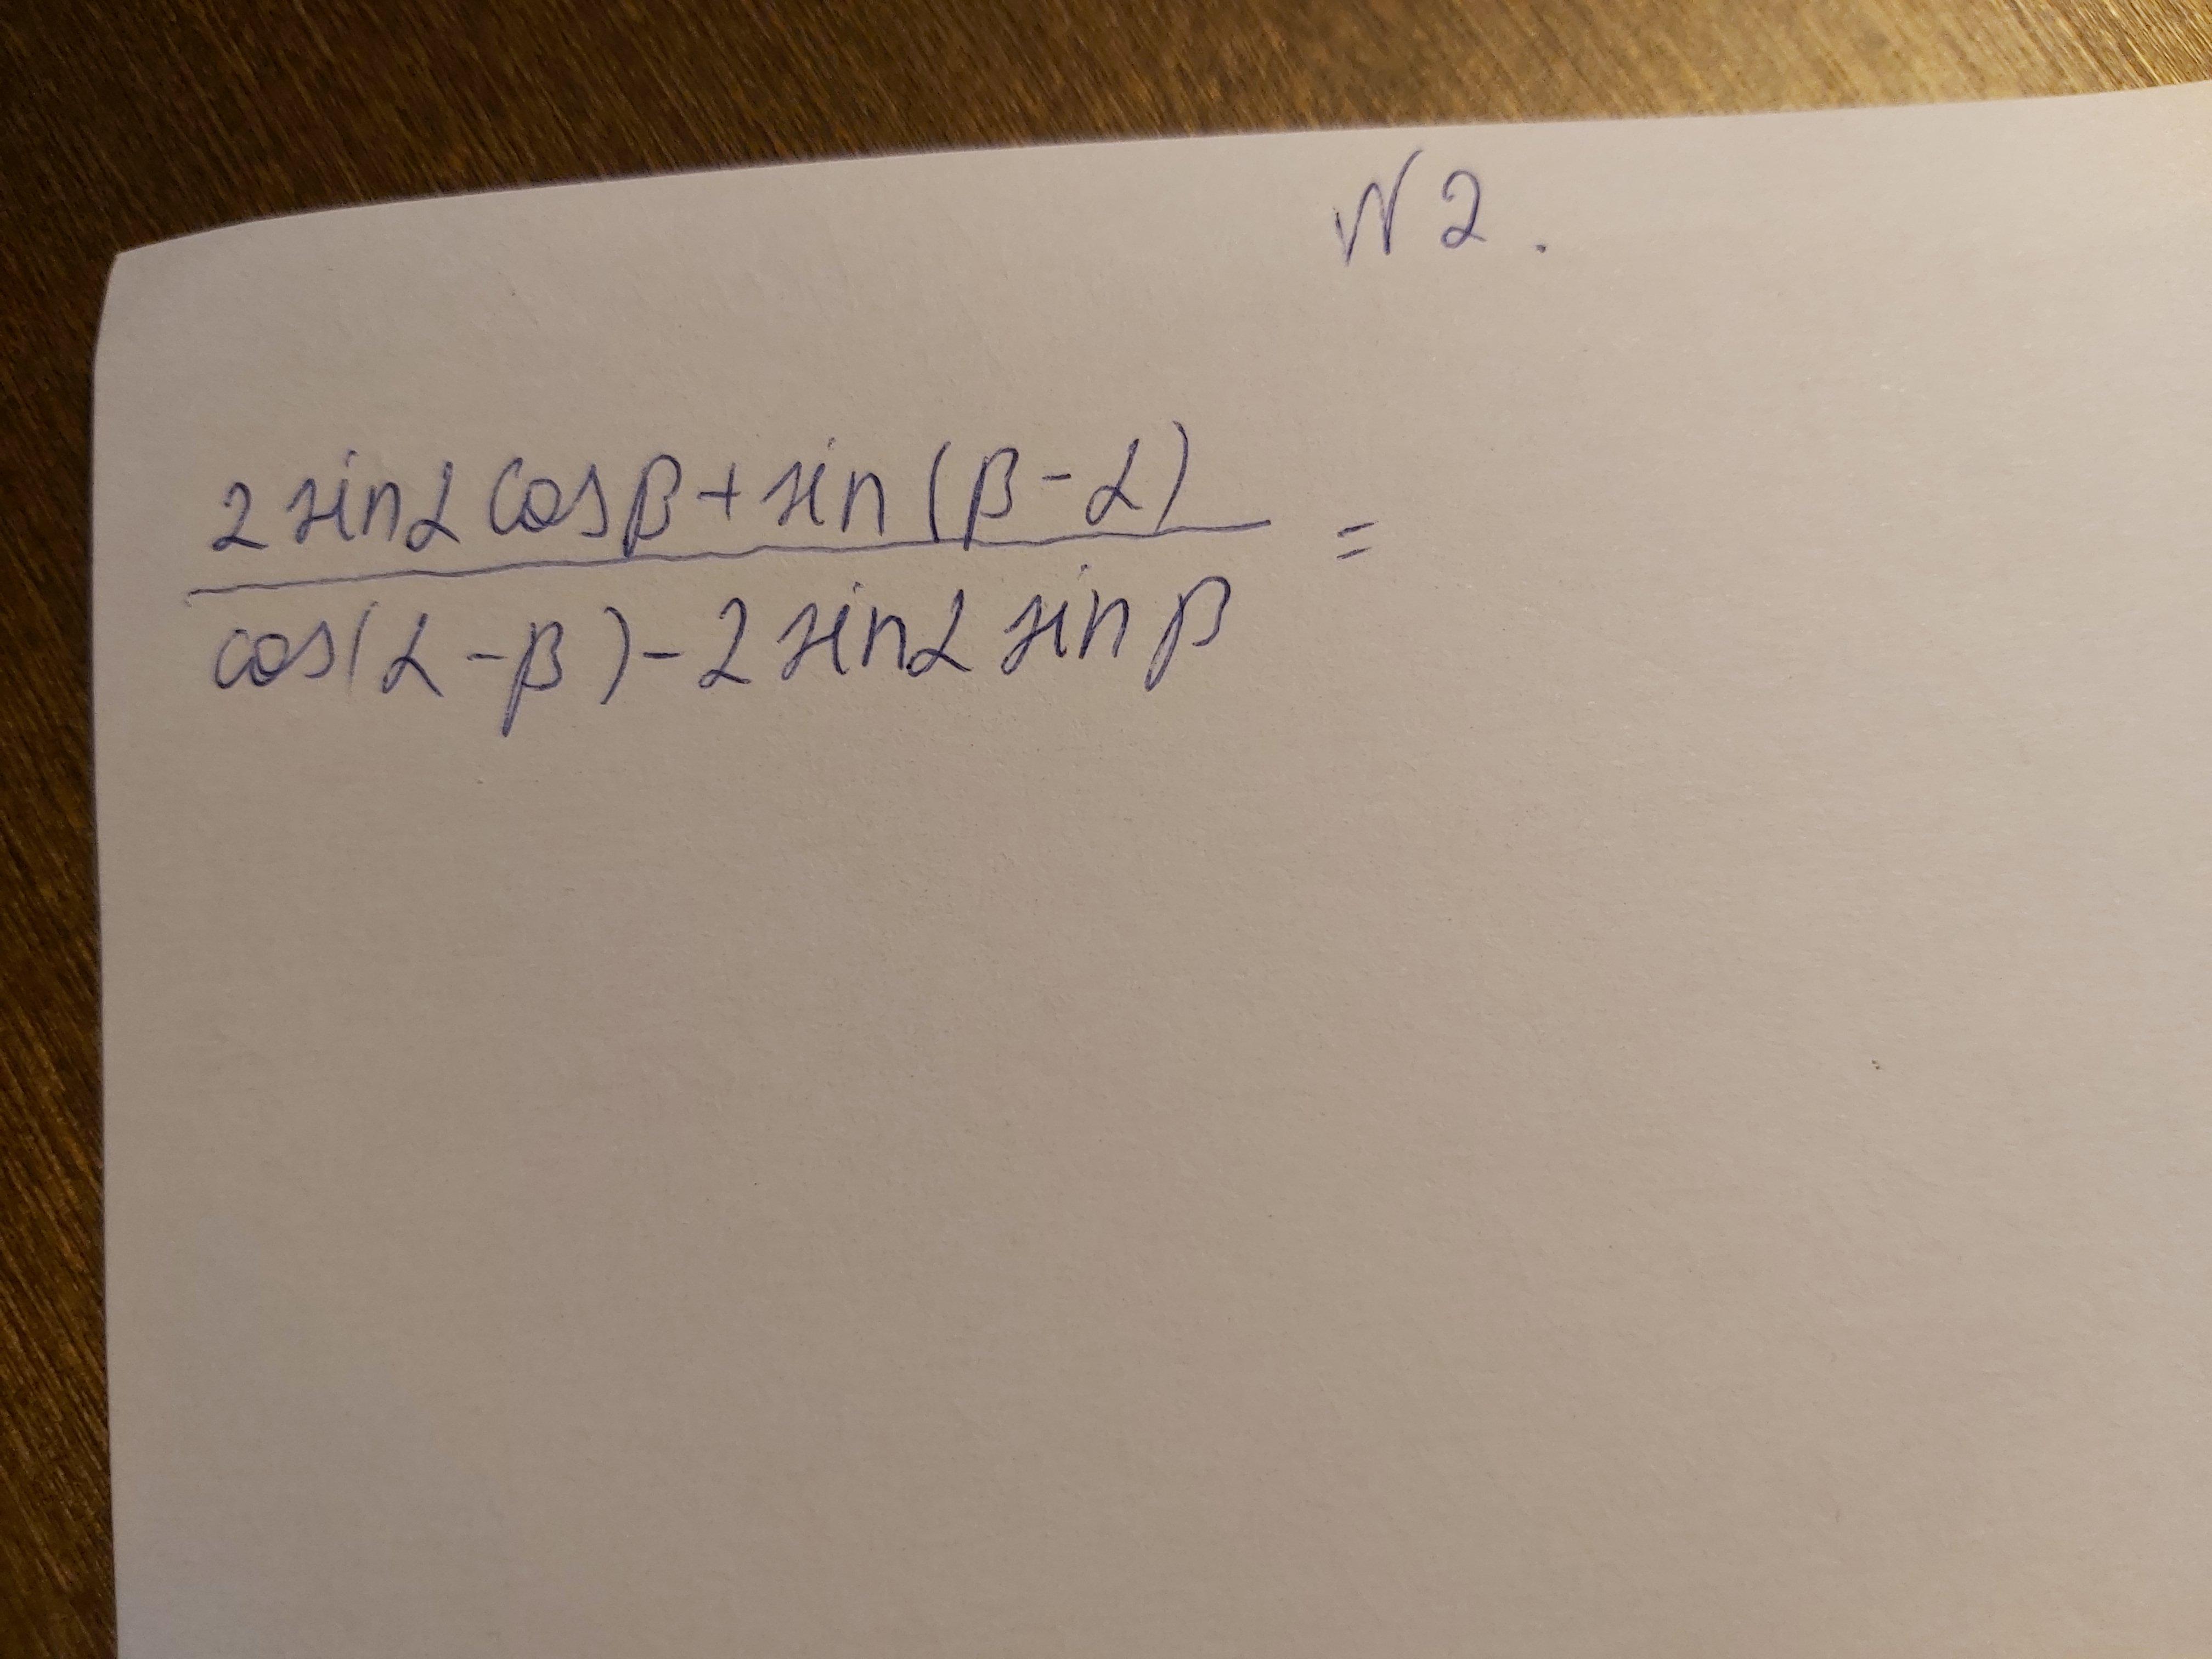 N 2.
2 sin α cos β + sin (β - α)
cos(α - β) - 2 sin α sin β =